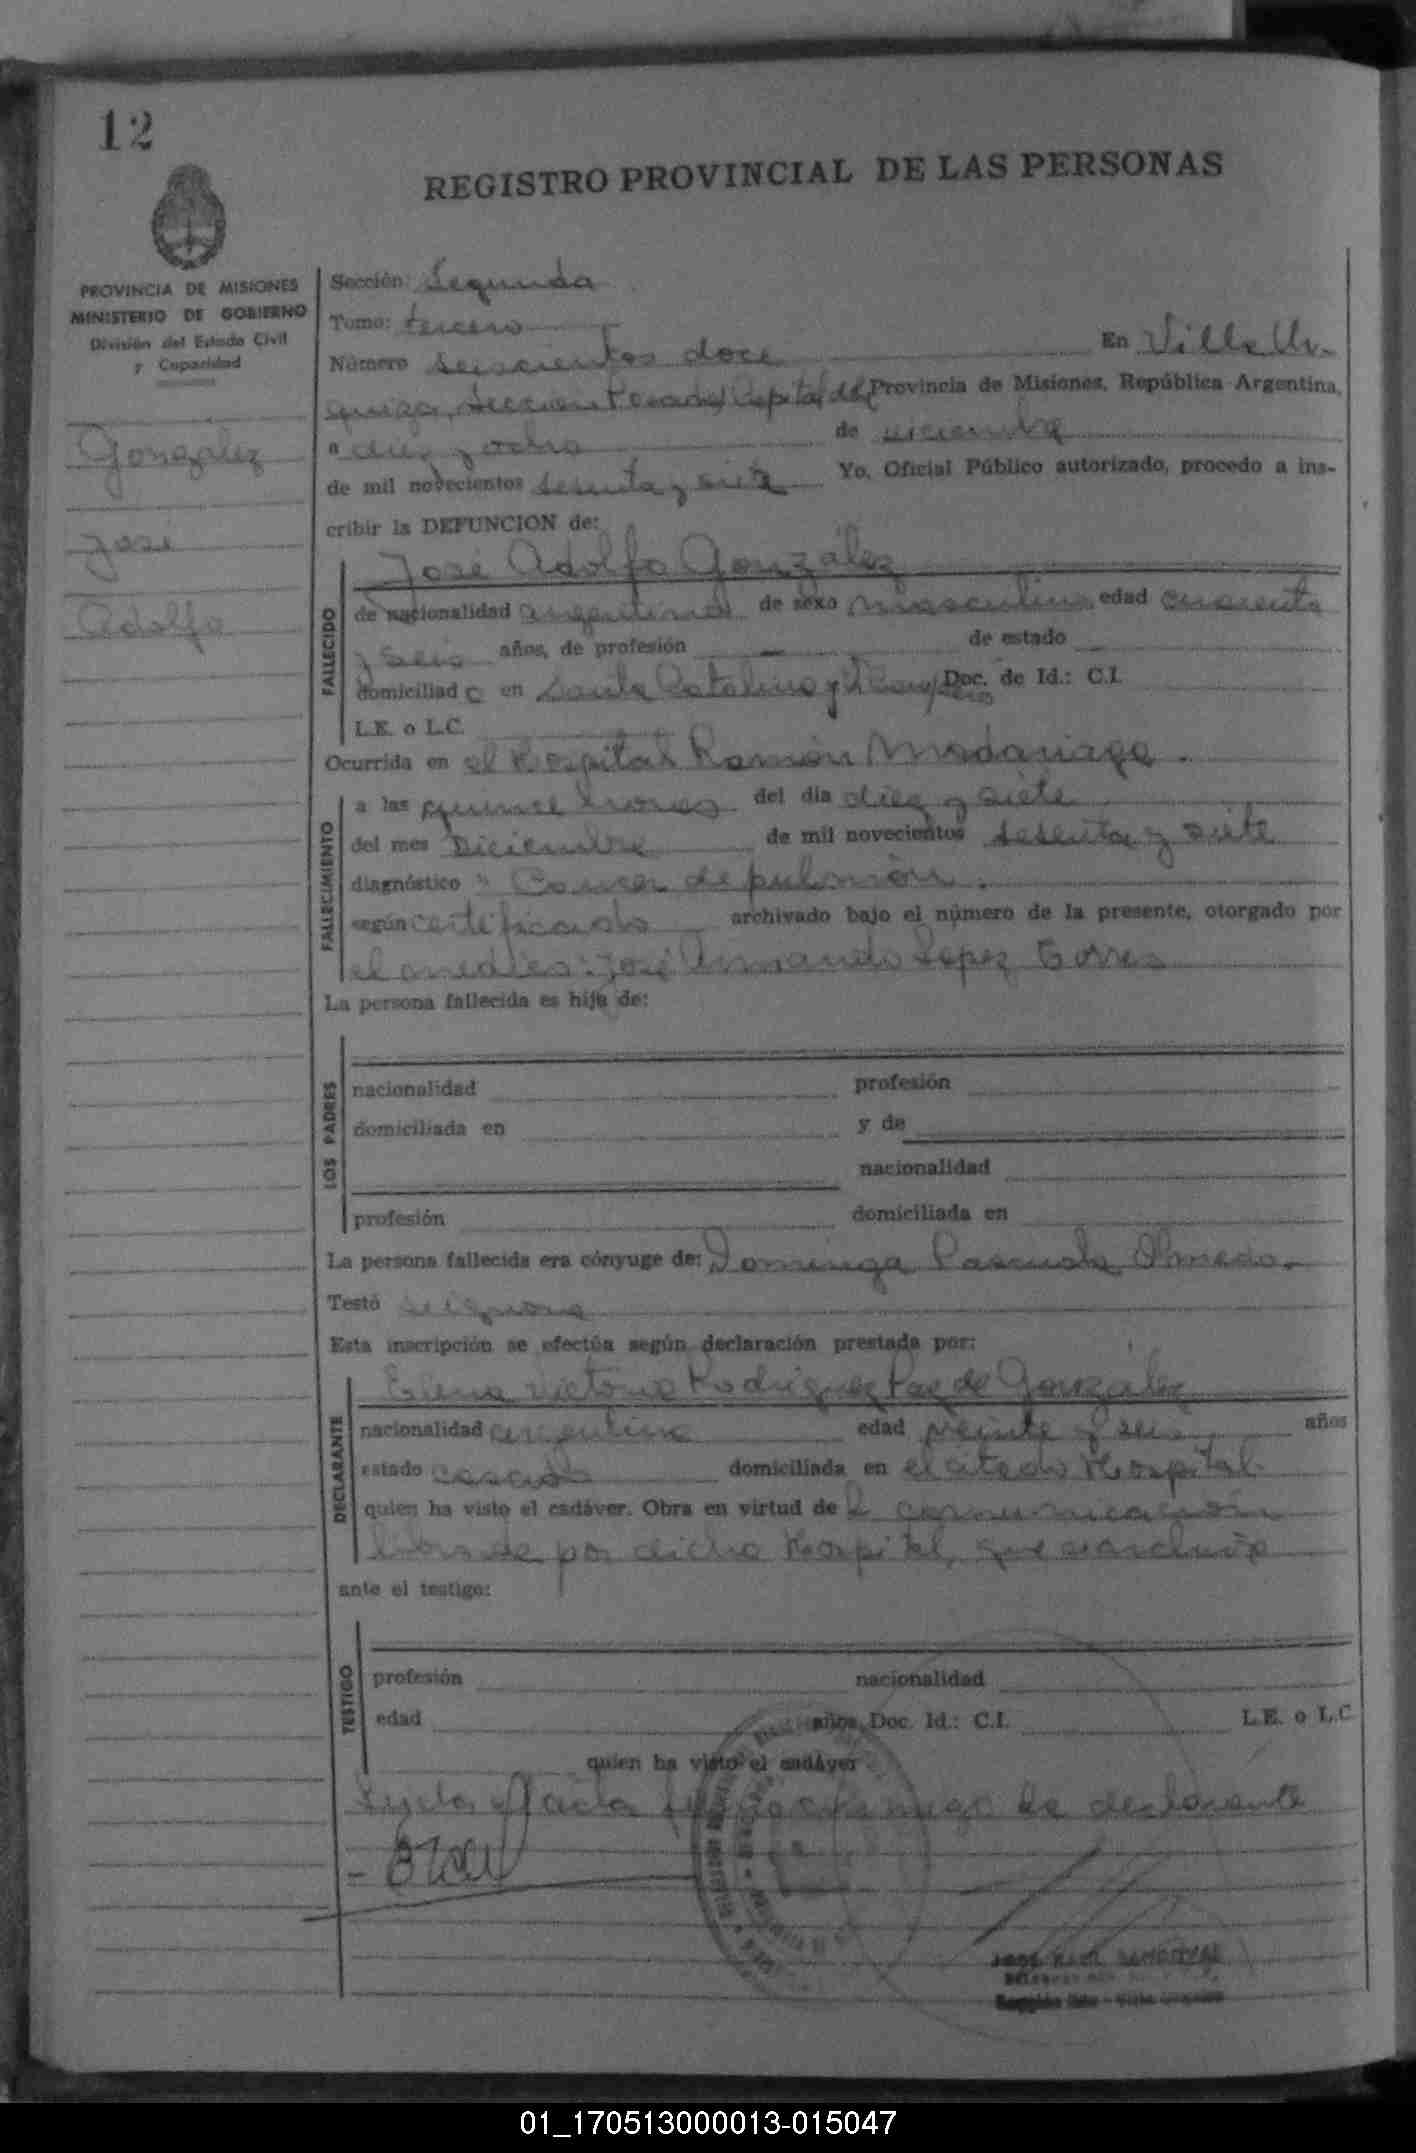 12
REGISTRO PROVINCIAL DE LAS PERSONAS
PROVINCIA DE MISIONES
MINISTERIO DE GOBIERNO
División del Estado Civil
y Capacidad
Gonzalez
José
Adolfo
Sección: Segunda
Tomo: tercero
Número seiscientos doce En Villa Ur-
quiza, Seccion Posadas Capital de la Provincia de Misiones, República Argentina,
a diez y ocho de diciembre
de mil novecientos sesenta y siete Yo, Oficial Público autorizado, procedo a ins-
cribir la DEFUNCION de:
José Adolfo González
FALLECIDO
de nacionalidad argentina de sexo masculino edad cuarenta
y seis años, de profesión — de estado
domiciliado en Santa Catalina y Doc. de Id.: C.I.
L.E. o L.C.
Ocurrida en el Hospital Ramón Madariaga.
FALLECIMIENTO
a las quince horas del día diez y siete
del mes Diciembre de mil novecientos sesenta y siete
diagnóstico Cancer de pulmón.
según certificado archivado bajo el número de la presente, otorgado por
el medico: José Armando Lopez Torres
La persona fallecida es hija de:
LOS PADRES
nacionalidad profesión
domiciliada en y de
nacionalidad
profesión domiciliada en
La persona fallecida era cónyuge de: Dominga Pascuala Olmedo.
Testó se ignora
Esta inscripción se efectúa según declaración prestada por:
Elena Victoria Rodriguez Paz de González
DECLARANTE
nacionalidad argentina edad veinte y seis años
estado casada domiciliada en el citado Hospital
quien ha visto el cadáver. Obra en virtud de la comunicación
librada por dicho Hospital, que se archiva
ante el testigo:
TESTIGO
profesión nacionalidad
edad años, Doc. Id.: C.I. L.E. o L.C.
quien ha visto el cadáver
Leyda el acta la declarante
JOSE RAUL SANDOVAL